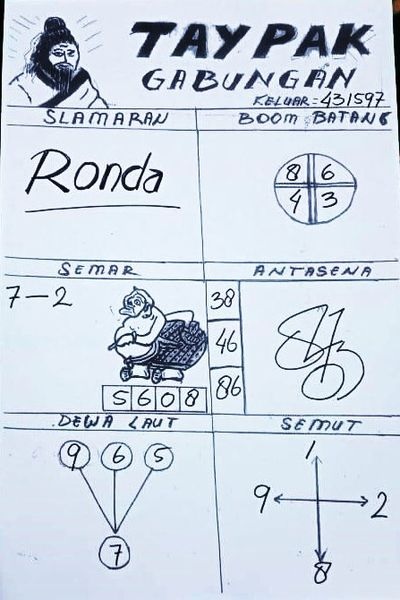 TAYPAK
GABUNGAN
KELUAR=431597
SLAMARAN
BOOM BATANG
Ronda
8 6
4 3
SEMAR
ANTASENA
7-2
38
46
86
5608
DEWA LAUT
SEMUT
9 6 5
7
1
9 2
8